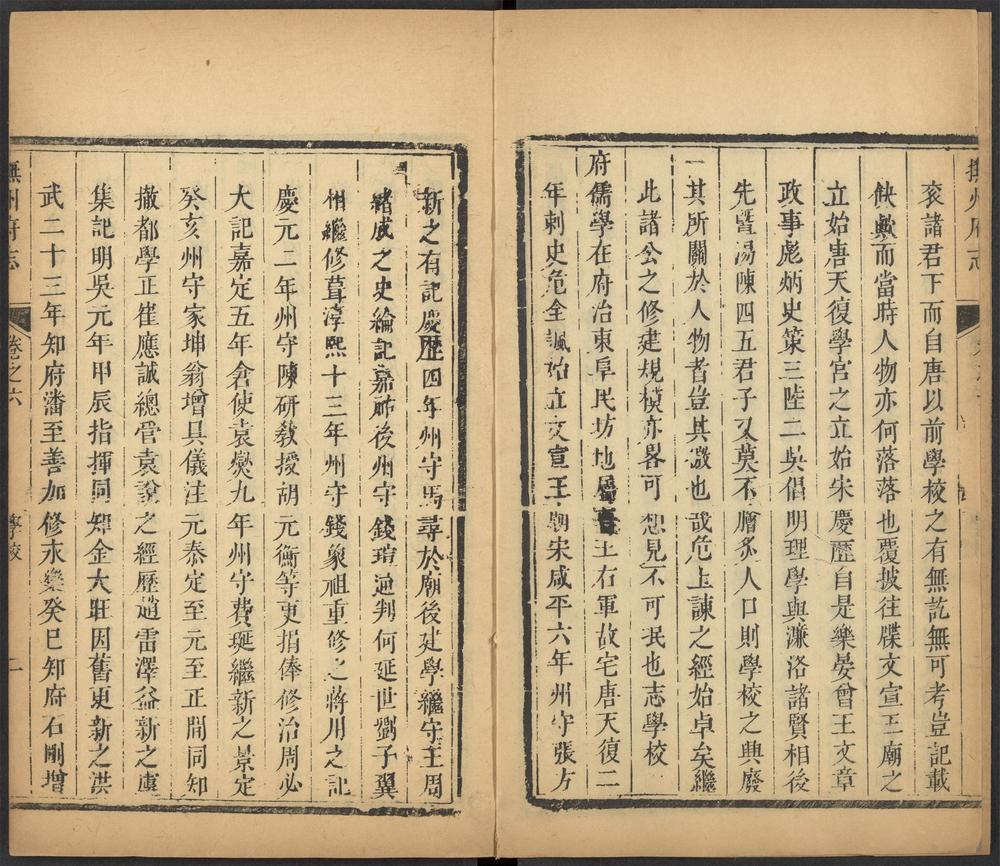 撫州府志
袞諸君下而自唐以前學校之有無訖無可考豈記載
缺歟而當時人物亦何落落也覆披往牒文宣王廟之
立始唐天復學宮之立始宋慶曆自是樂晏曾王文章
政事彪炳史策三陸二吳倡明理學與濂洛諸賢相後
先暨湯陳四五君子又莫不膾炙人口則學校之興廢
其所關於人物者豈其微也哉危上諫之經始卓矣繼
此諸公之修建規模亦畧可想見不可泯也志學校
府儒學在府治東阜民坊地屬王右軍故宅唐天復二
年刺史危全諷始立文宣王廟宋咸平六年州守張方
新之有記慶歷四年州守馬尋於廟後建學繼守王周
緒成之史綸記嘉祐後州守錢瑄通判何延世劉子翼
相繼修葺淳熙十三年州守錢象祖重修之蔣用之記
慶元二年州守陳研教授胡元衡等更捐俸修治周必
大記嘉定五年倉使袁爕九年州守費埏繼新之景定
癸亥州守家坤翁增具儀注元泰定至元至正間同知
撤都學正崔應誠總管袁說之經歷趙雷澤益新之虞
集記明吳元年甲辰指揮同知金大旺因舊更新之洪
武二十三年知府潘至善加修永樂癸巳知府石剛增
撫州府志
卷之六
學校
二